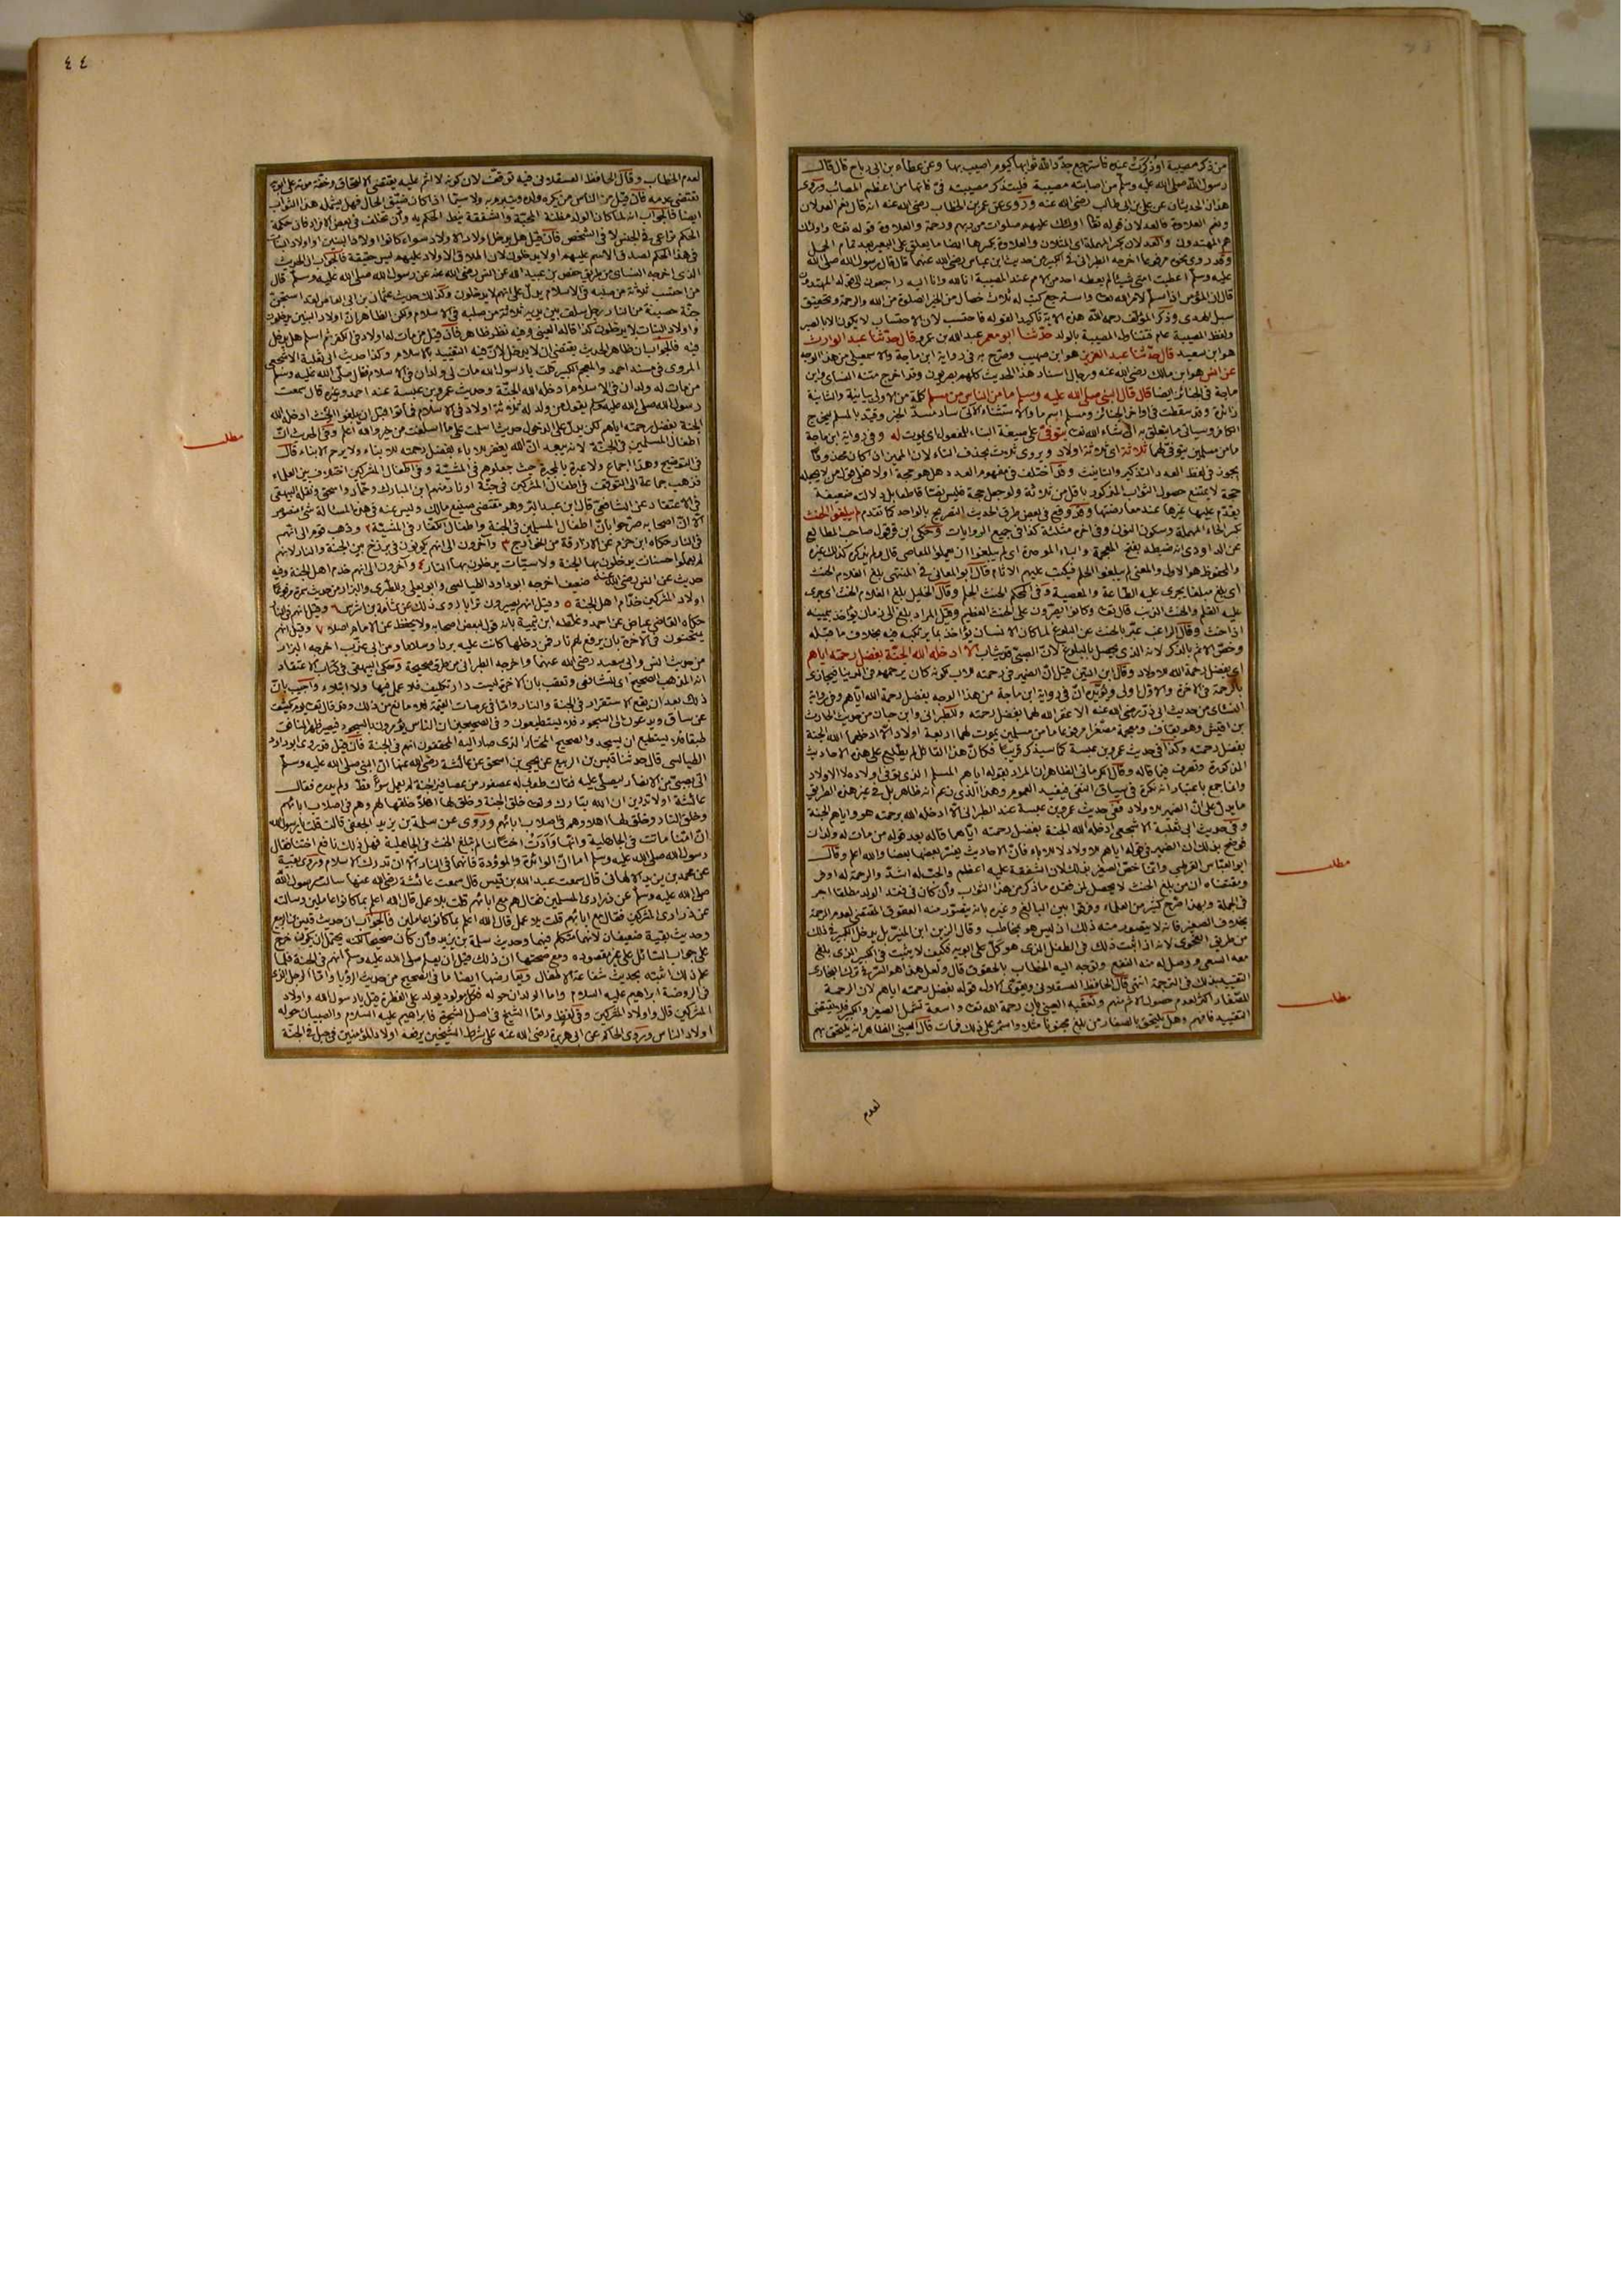 من ذكر مصيبة او ذكرت عنده فاسترجع جدد الله ثوابها كيوم اصيب بها وعن عطاء بن ابى رباح قال قال
رسول الله صلى الله عليه وسلم من اصابته مصيبة فليتذكر مصيبته فىّ فانها من اعظم المصائب وروى
هذان الحديثان عن على بن ابى طالب رضى الله عنه وروى عن عمر بن الخطاب رضى الله عنه انه قال نعم العدلان
ونعم العلاوة فالعدلان قوله تعالى اولئك عليهم صلوات من ربهم ورحمة والعلاوة قوله تعالى واولئك
هم المهتدون والعدلان بكسر المهملة اى المثلان والعلاوة بكسرها ايضا ما يعلق على البعير بعد تمام الحمل
وقد روى نحوه مرفوعا اخرجه الطبرانى فى الكبير من حديث ابن عباس رضى الله عنهما قال قال رسول الله صلى الله
عليه وسلم اعطيت امتى شيئا لم يعطه احد من الامم عند المصيبة انا لله وانا اليه راجعون الى قوله المهتدون
قال ان المؤمن اذا سلم لامر الله تعالى واسترجع كتب له ثلاث خصال من الخير الصلوة من الله والرحمة وتحقيق
سبل الهدى وذكر المؤلف رحمه الله هذه الآية تأكيدا لقوله فاحتسب لان الاحتساب لا يكون الا بالصبر
ولفظ المصيبة عام فتتناول المصيبة بالولد حدثنا ابو معمر عبد الله بن عمرو قال حدثنا عبد الوارث
هو ابن سعيد قال حدثنا عبد العزيز هو ابن صهيب وصرح به فى رواية ابن ماجة والاسمعيلى من هذا الوجه
عن انس هو ابن مالك رضى الله عنه ورجال اسناد هذا الحديث كلهم بصريون وقد اخرج متنه النسائى وابن
ماجة فى الجنائز ايضا قال قال النبى صلى الله عليه وسلم ما من الناس من مسلم كلمة من الاولى بيانية والثانية
زائدة وقد سقطت فى اواخر الجنائز ومسلم اسم ما والاستثناء الآتى ساد مسد الخبر وقيد بالمسلم ليخرج
الكافر وسيأتى ما يتعلق به ان شاء الله تعالى يتوفى على صيغة البناء للمفعول اى يموت له وفى رواية ابن ماجة
ما من مسلمين يتوفى لهما ثلاثة اى ثلاثة اولاد ويروى ثلاث بحذف التاء لان المميز اذا كان محذوفا
يجوز فى لفظ العدد التذكير والتأنيث وقد اختلف فى مفهوم العدد هل هو حجة اولا
حجة لا يمتنع حصول الثواب المذكور باقل من ثلاثة ولو جعل حجة فليس نصا قاطعا بل دلالته ضعيفة
يقدم عليها غيرها عند معارضتها وقد وقع فى بعض طرق الحديث التصريح بالواحد كما تقدم لم يبلغوا الحنث
بكسر الحاء المهملة وسكون النون وفى آخره مثلثة كذا فى جميع الروايات وحكى ابن قرقول صاحب المطالع
عن الداودى انه ضبطه بفتح المعجمة والباء الموحدة اى لم يبلغوا ان يعملوا المعاصى قال ولم يذكره كذلك غيره
والمحفوظ هو الاول والمعنى لم يبلغوا الحلم فيكتب عليهم الآثام قال ابو المعالى فى المنتهى بلغ الغلام الحنث
اى بلغ مبلغا يجرى عليه الطاعة والمعصية وفى المحكم الحنث الحلم وقال الخليل بلغ الغلام الحنث اى جرى
عليه القلم والحنث الذنب قال تعالى وكانوا يصرون على الحنث العظيم وقيل المراد بلغ الى زمان يؤاخذ بيمينه
اذا حنث وقال الراغب عبر بالحنث عن البلوغ لما كان الانسان يؤاخذ بما يرتكبه فيه بخلاف ما قبله
وخص الاثم بالذكر لانه الذى يحصل بالبلوغ لان الصبى قد يثاب الا ادخله الله الجنة بفضل رحمته اياهم
اى بفضل رحمة الله للاولاد وقال ابن التين قيل ان الضمير فى رحمته للاب لكونه كان يرحمهم فى الدنيا فيجازى
بالرحمة فى الآخرة والاول اولى ويؤيده ان فى رواية ابن ماجة من هذا الوجه بفضل رحمة الله اياهم وفى رواية
النسائى من حديث ابى ذر رضى الله عنه الا غفر الله لهما بفضل رحمته وللطبرانى وابن حبان من حديث الحارث
بن اقيش وهو بقاف ومعجمة مصغرا مرفوعا ما من مسلمين يموت لهما اربعة اولاد الا ادخلهما الله الجنة
بفضل رحمته وكذا فى حديث عمرو بن عبسة كما سيذكر قريبا فكأن هذا القائل لم يطلع على هذه الاحاديث
المذكورة وتصرف فيما قاله وقال الكرمانى الظاهر ان المراد بقوله اياهم المسلم الذى توفى اولاده لا الاولاد
وانما جمع باعتبار انه نكرة فى سياق النفى فيفيد العموم وهذا الذى زعم انه ظاهر بل فى غير هذه الطريق
ما يدل على ان الضمير للاولاد ففى حديث عمرو بن عبسة عند الطبرانى الا ادخله الله برحمته هو واياهم الجنة
وفى حديث ابى ثعلبة الاشجعى ادخله الله الجنة بفضل رحمته اياهما قاله بعد قوله من مات له ولدان
فوضح بذلك ان الضمير فى قوله اياهم للاولاد لا للآباء فان الاحاديث يفسر بعضها بعضا والله اعلم وقال
ابو العباس القرطبى وانما خص الصغير بذلك لان الشفقة عليه اعظم والحب له اشد والرحمة له اوفر
ومقتضاه ان من بلغ الحنث لا يحصل لمن فقده ما ذكر من هذا الثواب وان كان فى فقد الولد مطلقا اجر
فى الجملة وبهذا صرح كثير من العلماء وفرقوا بين البالغ وغيره بانه يتصور منه العقوق المقتضى لعدم الرحمة
بخلاف الصغير فانه لا يتصور منه ذلك اذ ليس هو بمخاطب وقال الزين ابن المنير بل يدخل الكبير فى ذلك
من طريق الفحوى لانه اذا ثبت ذلك فى الطفل الذى هو كل على ابويه فكيف لا يثبت فى الكبير الذى بلغ
معه السعى ووصل له منه النفع وتوجه اليه الخطاب بالحقوق قال ولعل هذا هو السر فى ترك البخارى
التقييد بذلك فى الترجمة انتهى قال الحافظ العسقلانى ويقوى الاول قوله بفضل رحمته اياهم لان الرحمة
للصغار اكثر لعدم حصول الاثم منهم وتعقبه العينى بان رحمة الله تعالى واسعة تشمل الصغير والكبير فلا يقتضى
التقييد فافهم وهل يلتحق بالصغار من بلغ مجنونا مثلا واستمر على ذلك فمات قال العينى الظاهر انه يلتحق بهم
لعدم
مطلب
مطلب
٤٤
لعدم الخطاب وقال الحافظ العسقلانى فيه توقف لان كونه لا اثم عليه يقتضى الالحاق وخفة موته على ابويه
تقتضى عدمه فان قيل من الناس من يكره ولده ويتبرم به ولا سيما اذا كان ضيق الحال فهل يشمله هذا الثواب
ايضا فالجواب انه لما كان الولد مظنة المحبة والشفقة نيط الحكم به وان تخلف فى بعض الافراد فان حكمة
الحكم تراعى فى الجنس لا فى الشخص فان قيل هل يدخل اولاد الاولاد سواء كانوا اولاد البنين او اولاد البنات
فى هذا الحكم لصدق الاسم عليهم اولا يدخلون لان اطلاق الاولاد عليهم ليس حقيقة فالجواب ان الحديث
الذى اخرجه النسائى من طريق حفص بن عبيد الله عن انس رضى الله عنه عن رسول الله صلى الله عليه وسلم قال
من احتسب ثلاثة من صلبه فى الاسلام يدل على انهم لا يدخلون وكذلك حديث عثمان بن ابى العاص لقد استجن
جنة حصينة من النار رجل سلف بين يديه ثلاثة من صلبه فى الاسلام ولكن الظاهر ان اولاد البنين يدخلون
واولاد البنات لا يدخلون كذا قاله العينى وفيه نظر ظاهر فان قيل من مات له اولاد فى الكفر ثم اسلم هل يدخل
فيه فالجواب ان ظاهر الحديث يقتضى ان لا يدخل لان فيه التقييد بالاسلام وكذا حديث ابى ثعلبة الاشجعى
المروى فى مسند احمد والمعجم الكبير قلت يا رسول الله مات لى ولدان فى الاسلام فقال صلى الله عليه وسلم
من مات له ولدان فى الاسلام ادخله الله الجنة وحديث عمرو بن عبسة عند احمد وغيره قال سمعت
رسول الله صلى الله عليه وسلم يقول من ولد له ثلاثة اولاد فى الاسلام فماتوا قبل ان يبلغوا الحنث ادخله الله
الجنة بفضل رحمته اياهم لكن يدل على الدخول حديث اسلمت على ما اسلفت من خير والله اعلم وفى الحديث ان
اطفال المسلمين فى الجنة لانه يبعد ان الله يغفر للآباء بفضل رحمته للابناء ولا يرحم الابناء قال
فى التوضيح وهذا اجماع ولا عبرة بالمجبرة حيث جعلوهم فى المشيئة وفى اطفال المشركين اختلاف بين العلماء
فذهب جماعة الى التوقف فى اطفال المشركين فى جنة او نار منهم ابن المبارك وحماد واسحق ونقله البيهقى
فى الاعتقاد عن الشافعى قال ابن عبد البر وهو مقتضى صنيع مالك وليس عنه فى هذه المسألة شئ منصوص
الا ان اصحابه صرحوا بان اطفال المسلمين فى الجنة واطفال الكفار فى المشيئة ٢ وذهب قوم الى انهم
فى النار حكاه ابن حزم عن الازارقة من الخوارج ٣ وآخرون الى انهم يكونون فى برزخ بين الجنة والنار لانهم
لم يعملوا حسنات يدخلون بها الجنة ولا سيئات يدخلون بها النار ٤ وآخرون الى انهم خدم اهل الجنة وفيه
حديث عن انس رضى الله عنه ضعيف اخرجه ابو داود الطيالسى وابو يعلى وللطبرى والبزار من حديث سمرة مرفوعا
اولاد المشركين خدم اهل الجنة ٥ وقيل انهم يصيرون ترابا روى ذلك عن ثمامة بن اشرس ٦ وقيل انهم فى النار
حكاه القاضى عياض عن احمد وغلطه ابن تيمية بانه قول لبعض اصحابه ولا يحفظ عن الامام اصلا ٧ وقيل انهم
يمتحنون فى الآخرة بان يرفع لهم نار فمن دخلها كانت عليه بردا وسلاما ومن ابى عذب اخرجه البزار
من حديث انس وابى سعيد رضى الله عنهما واخرجه الطبرانى من طرق صحيحة وحكى البيهقى فى كتاب الاعتقاد
انه المذهب الصحيح اى للشافعى وتعقب بان الآخرة ليست دار تكليف فلا عمل فيها ولا ابتلاء واجيب بان
ذلك بعد ان يقع الاستقرار فى الجنة والنار واما فى عرصات القيمة فلا مانع من ذلك وقد قال تعالى يوم يكشف
عن ساق ويدعون الى السجود فلا يستطيعون وفى الصحيحين ان الناس يؤمرون بالسجود فيصير ظهر المنافق
طبقا فلا يستطيع ان يسجد والصحيح المختار الذى صار اليه المحققون انهم فى الجنة فان قيل قد روى ابو داود
الطيالسى قال حدثنا قيس بن الربيع عن يحيى بن اسحق عن عائشة رضى الله عنها ان النبى صلى الله عليه وسلم
اتى بصبى من الانصار ليصلى عليه فقالت طوبى له عصفور من عصافير الجنة لم يعمل سوأ قط ولم يدره فقال
عائشة اولا تدرين ان الله تبارك وتعالى خلق الجنة وخلق لها اهلا خلقها لهم وهم فى اصلاب ابائهم
وخلق النار وخلق لها اهلا وهم فى اصلاب ابائهم وروى عن سلمة بن يزيد الجعفى قالت قلت يا رسول الله
ان امنا ماتت فى الجاهلية وانها وأدت اختا لنا لم تبلغ الحنث فى الجاهلية فهل ذلك نافع اختنا فقال
رسول الله صلى الله عليه وسلم اما ان الوائدة والموؤدة فانهما فى النار الا ان تدرك الاسلام وروى بقية
عن محمد بن يزيد الالهانى قال سمعت عبد الله بن قيس قال سمعت عائشة رضى الله عنها سألت رسول الله
صلى الله عليه وسلم عن ذرارى المسلمين فقال هم مع ابائهم قلت بلا عمل قال الله اعلم بما كانوا عاملين وسألته
عن ذرارى المشركين فقال مع ابائهم قلت بلا عمل قال الله اعلم بما كانوا عاملين فالجواب ان حديث قيس بن ربيع
وحديث بقية ضعيفان لانهما متكلم فيهما وحديث سلمة بن يزيد وان كان صحيحا لكنه يحتمل ان يكون خرج
على جواب السائل على غير مقصوده ومع صحتها ان ذلك قبل ان يعلم صلى الله عليه وسلم انهم فى الجنة فلما
علم ذلك اثبته بحديث شفاعة الاطفال ويعارضها ايضا ما فى الصحيح من حديث الرؤيا واما الرجل الذى
فى الروضة ابراهيم عليه السلام واما الولدان حوله فكل مولود يولد على الفطرة قيل يا رسول الله واولاد
المشركين قال واولاد المشركين وفى لفظ واما الشيخ فى اصل الشجرة فابراهيم عليه السلام والصبيان حوله
اولاد الناس وروى الحاكم عن ابى هريرة رضى الله عنه على شرط الشيخين يرفعه اولاد المؤمنين فى جبل فى الجنة
مطلب